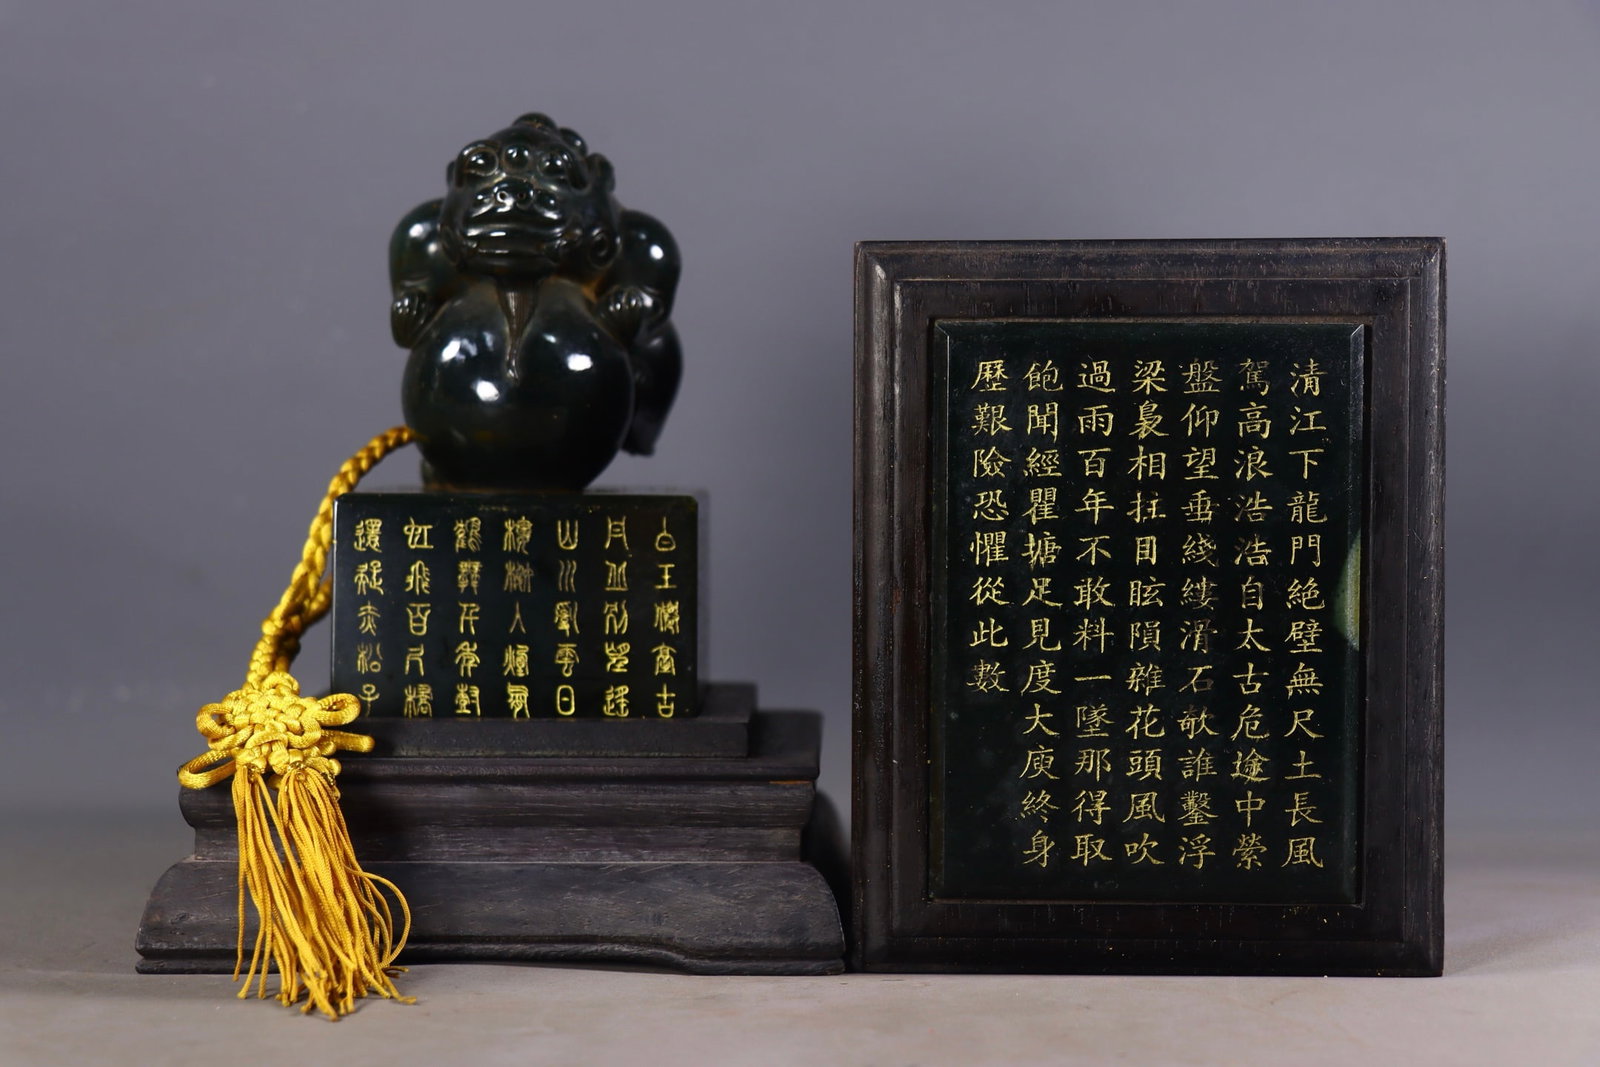 白玉僊臺古
丹丘別望遙
山川亂雲日
樓榭入煙霄
鶴舞千年樹
虹飛百尺橋
還疑赤松子
清江下龍門絶壁無尺土長風
駕高浪浩浩自太古危途中縈
盤仰望垂綫縷滑石欹誰鑿浮
梁裊相拄目眩隕雜花頭風吹
過雨百年不敢料一墜那得取
飽聞經瞿塘足見度大庾終身
歷艱險恐懼從此數